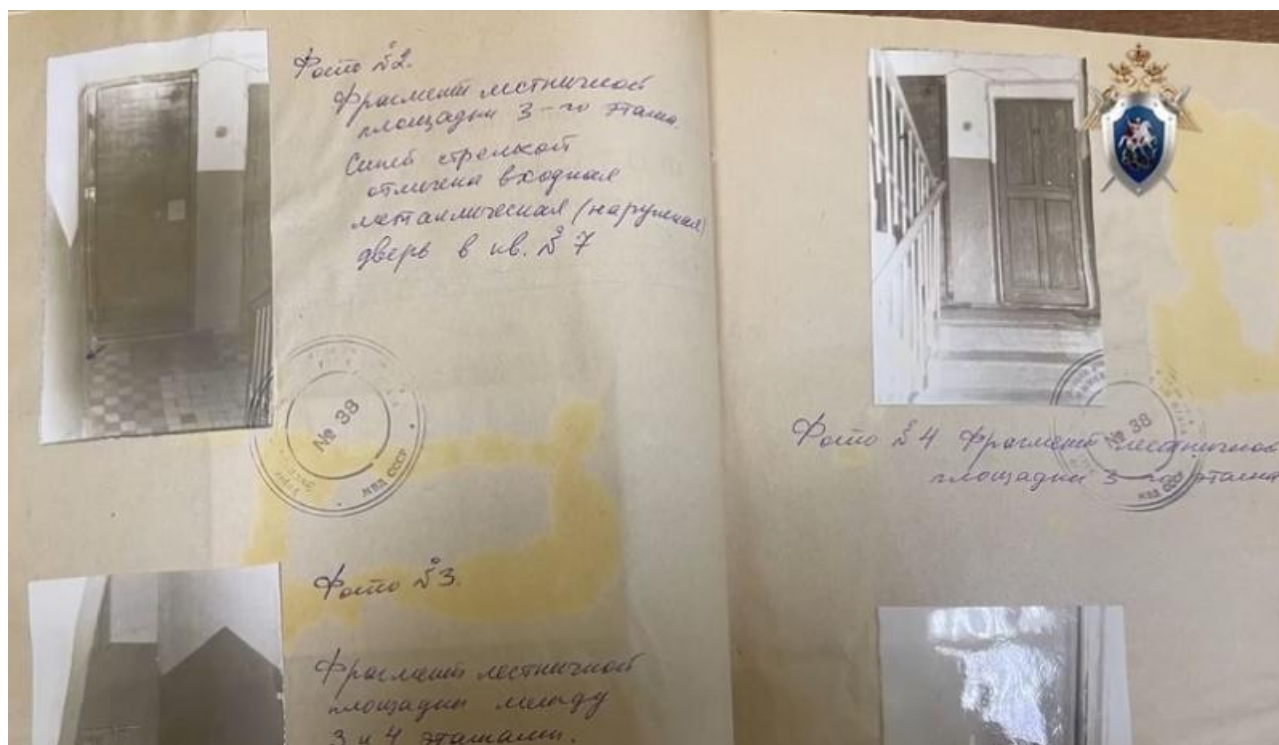 Фото №2.
Фрагмент лестничной
площадки 3-го этажа.
Синей стрелкой
отмечена входная
металлическая (наружная)
дверь в кв. № 7
№ 38
МВД СССР
Фото №3.
Фрагмент лестничной
площадки между
3 и 4 этажами.
Фото №4 Фрагмент лестничной
площадки 3-го этажа
№ 38
МВД СССР